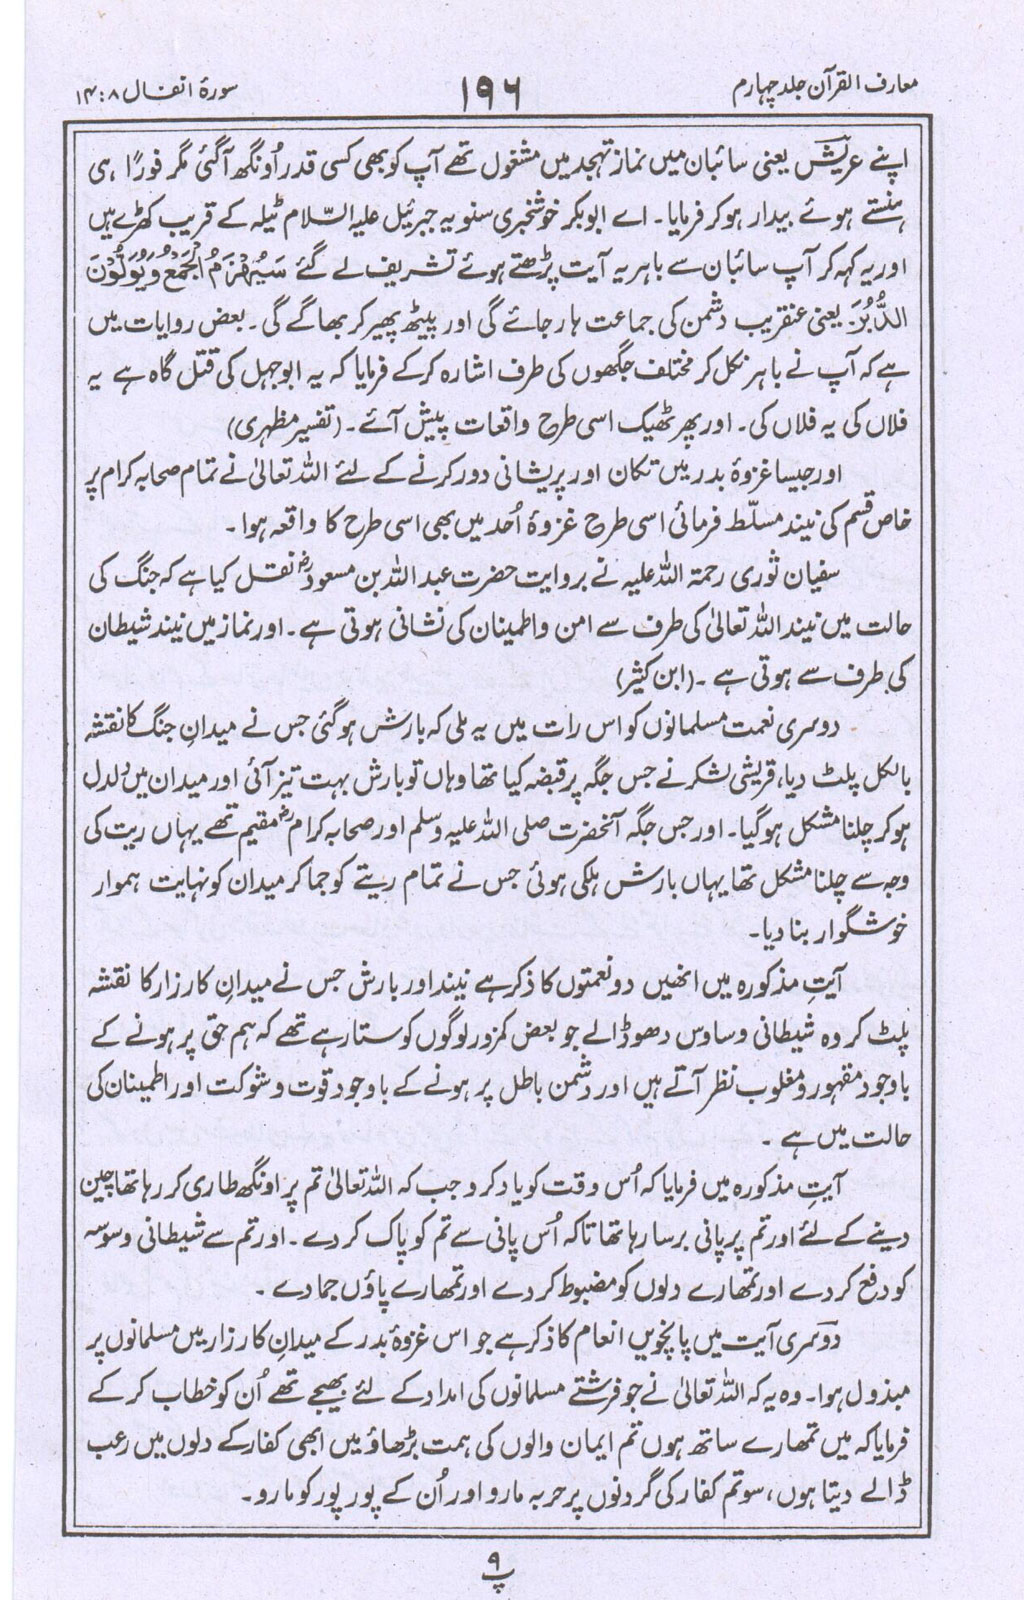 معارف القرآن جلد چہارم
۱۹۶
سورۂ انفال ۸ : ۱۴
اپنے عریش یعنی سائبان میں نماز تہجد میں مشغول تھے آپ کو بھی کسی قدر اُونگھ آگئی مگر فورًا ہی
ہنستے ہوئے بیدار ہو کر فرمایا۔ اے ابوبکر خوشخبری سنو یہ جبرئیل علیہ السّلام ٹیلہ کے قریب کھڑے ہیں
اور یہ کہہ کر آپ سائبان سے باہر یہ آیت پڑھتے ہوئے تشریف لے گئے سَيُهْزَمُ الْجَمْعُ وَيُوَلُّوْنَ
الدُّبُرَ یعنی عنقریب دشمن کی جماعت ہار جائے گی اور پیٹھ پھیر کر بھاگے گی۔ بعض روایات میں
ہے کہ آپ نے باہر نکل کر مختلف جگھوں کی طرف اشارہ کر کے فرمایا کہ یہ ابوجہل کی قتل گاہ ہے یہ
فلاں کی یہ فلاں کی۔ اور پھر ٹھیک اسی طرح واقعات پیش آئے۔ (تفسیر مظہری)
اور جیسا غزوۂ بدر میں تکان اور پریشانی دور کرنے کے لئے اللہ تعالیٰ نے تمام صحابہ کرام پر
خاص قسم کی نیند مسلّط فرمائی اسی طرح غزوۂ اُحد میں بھی اسی طرح کا واقعہ ہوا۔
سفیان ثوری رحمۃ اللہ علیہ نے بروایت حضرت عبد اللہ بن مسعودؓ نقل کیا ہے کہ جنگ کی
حالت میں نیند اللہ تعالیٰ کی طرف سے امن و اطمینان کی نشانی ہوتی ہے۔ اور نماز میں نیند شیطان
کی طرف سے ہوتی ہے۔ (ابن کثیر)
دوسری نعمت مسلمانوں کو اس رات میں یہ ملی کہ بارش ہوگئی جس نے میدانِ جنگ کا نقشہ
بالکل پلٹ دیا، قریشی لشکر نے جس جگہ پر قبضہ کیا تھا وہاں تو بارش بہت تیز آئی اور میدان میں دلدل
ہو کر چلنا مشکل ہوگیا۔ اور جس جگہ آنحضرت صلی اللہ علیہ وسلم اور صحابہ کرامؓ مقیم تھے یہاں ریت کی
وجہ سے چلنا مشکل تھا یہاں بارش ہلکی ہوئی جس نے تمام ریتے کو جما کر میدان کو نہایت ہموار
خوشگوار بنا دیا۔
آیتِ مذکورہ میں انھیں دو نعمتوں کا ذکر ہے نیند اور بارش جس نے میدانِ کارزار کا نقشہ
پلٹ کر وہ شیطانی وساوس دھو ڈالے جو بعض کمزور لوگوں کو ستا رہے تھے کہ ہم حق پر ہونے کے
باوجود مقہور و مغلوب نظر آتے ہیں اور دشمن باطل پر ہونے کے باوجود قوت و شوکت اور اطمینان کی
حالت میں ہے۔
آیتِ مذکورہ میں فرمایا کہ اُس وقت کو یاد کرو جب کہ اللہ تعالیٰ تم پر اونگھ طاری کر رہا تھا چین
دینے کے لئے اور تم پر پانی برسا رہا تھا تاکہ اُس پانی سے تم کو پاک کر دے۔ اور تم سے شیطانی وسوسہ
کو دفع کر دے اور تمھارے دلوں کو مضبوط کر دے اور تمھارے پاؤں جما دے۔
دوسری آیت میں پانچویں انعام کا ذکر ہے جو اس غزوۂ بدر کے میدانِ کارزار میں مسلمانوں پر
مبذول ہوا۔ وہ یہ کہ اللہ تعالیٰ نے جو فرشتے مسلمانوں کی امداد کے لئے بھیجے تھے اُن کو خطاب کر کے
فرمایا کہ میں تمھارے ساتھ ہوں تم ایمان والوں کی ہمت بڑھاؤ میں ابھی کفار کے دلوں میں رعب
ڈالے دیتا ہوں، سو تم کفار کی گردنوں پر حربہ مارو اور اُن کے پور پور کو مارو۔
پ ۹